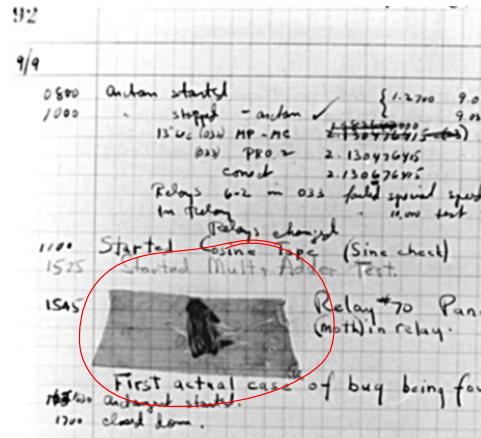 92
9/9
0800 antan started { 1.2700 9.0
1000 " stopped - antan ✓ 9.03
13"uc (033) MP-MC 2.130476415
(033) PRO 2 2.130476415
conect 2.130676415
Relays 6-2 in 033 failed special speed
In Relay " 10,000 test
Relays changed
1100 Started Cosine Tape (Sine check)
1525 Started Mult+ Adder Test.
1545 Relay #70 Pan
(moth) in relay.
First actual case of bug being fou
antangent started.
1700 closed down.